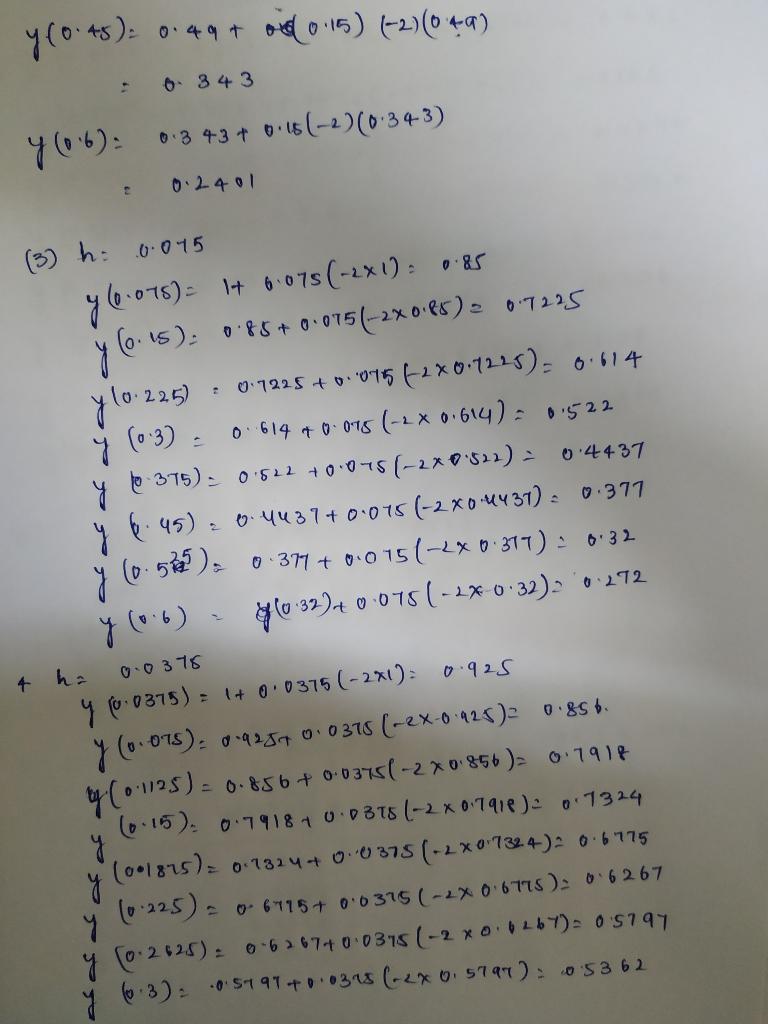 y(0.45) = 0.49 + (0.15) (-2)(0.49)
= 0.343
y(0.6) = 0.343 + 0.15(-2)(0.343)
= 0.2401
(3) h = 0.075
y(0.075) = 1+ 0.075(-2×1) = 0.85
y(0.15) = 0.85 + 0.075(-2×0.85) = 0.7225
y(0.225) = 0.7225 + 0.075(-2×0.7225) = 0.614
y(0.3) = 0.614 + 0.075(-2×0.614) = 0.522
y(0.375) = 0.522 + 0.075(-2×0.522) = 0.4437
y(0.45) = 0.4437 + 0.075(-2×0.4437) = 0.377
y(0.525) = 0.377 + 0.075(-2×0.377) = 0.32
y(0.6) = (0.32) + 0.075(-2×0.32) = 0.272
4 h = 0.0375
y(0.0375) = 1+ 0.0375(-2×1) = 0.925
y(0.075) = 0.925+ 0.0375(-2×0.925) = 0.856.
y(0.1125) = 0.856 + 0.0375(-2×0.856) = 0.7918
y(0.15) = 0.7918 + 0.0375(-2×0.7918) = 0.7324
y(0.1875) = 0.7324 + 0.0375(-2×0.7324) = 0.6775
y(0.225) = 0.6775 + 0.0375(-2×0.6775) = 0.6267
y(0.2625) = 0.6267+0.0375(-2×0.6267) = 0.5797
y(0.3) = 0.5797 + 0.0375(-2×0.5797) = 0.5362